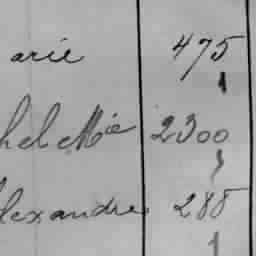 arie 475
hel Mie 2300
lexandre 288